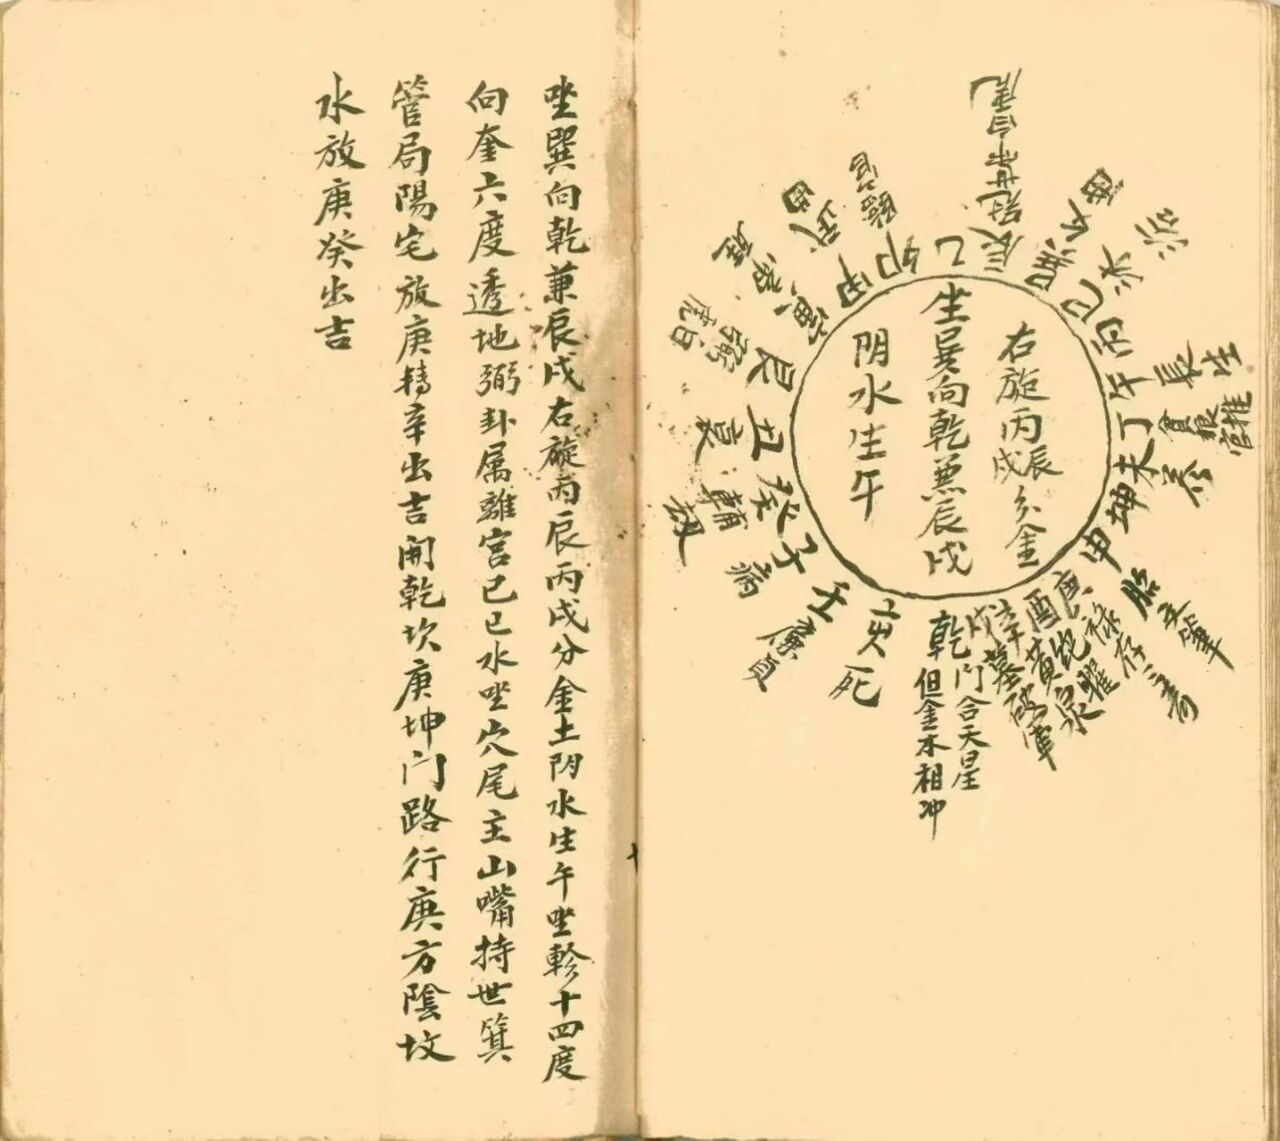 右旋丙辰
戌分金
坐巽向乾兼辰戌
阴水生午
乙
辰冠世帝白虎
巽
巳沐浴
丙
午長生
丁貪狼官推
未养
坤
申胎
庚禄存
酉
辛
戌墓破軍
乾門合天星
但金木相冲
亥死
壬廉貞
子病
癸輔
丑衰
艮弼
寅帝旺
甲武曲
卯臨官
坐巽向乾兼辰戌右旋丙辰丙戌分金土阴水生午坐軫十四度
向奎六度透地弼卦属離宫己巳水坐穴尾主山嘴持世箕
管局陽宅放庚轉辛出吉開乾坎庚坤门路行庚方陰坟
水放庚癸出吉